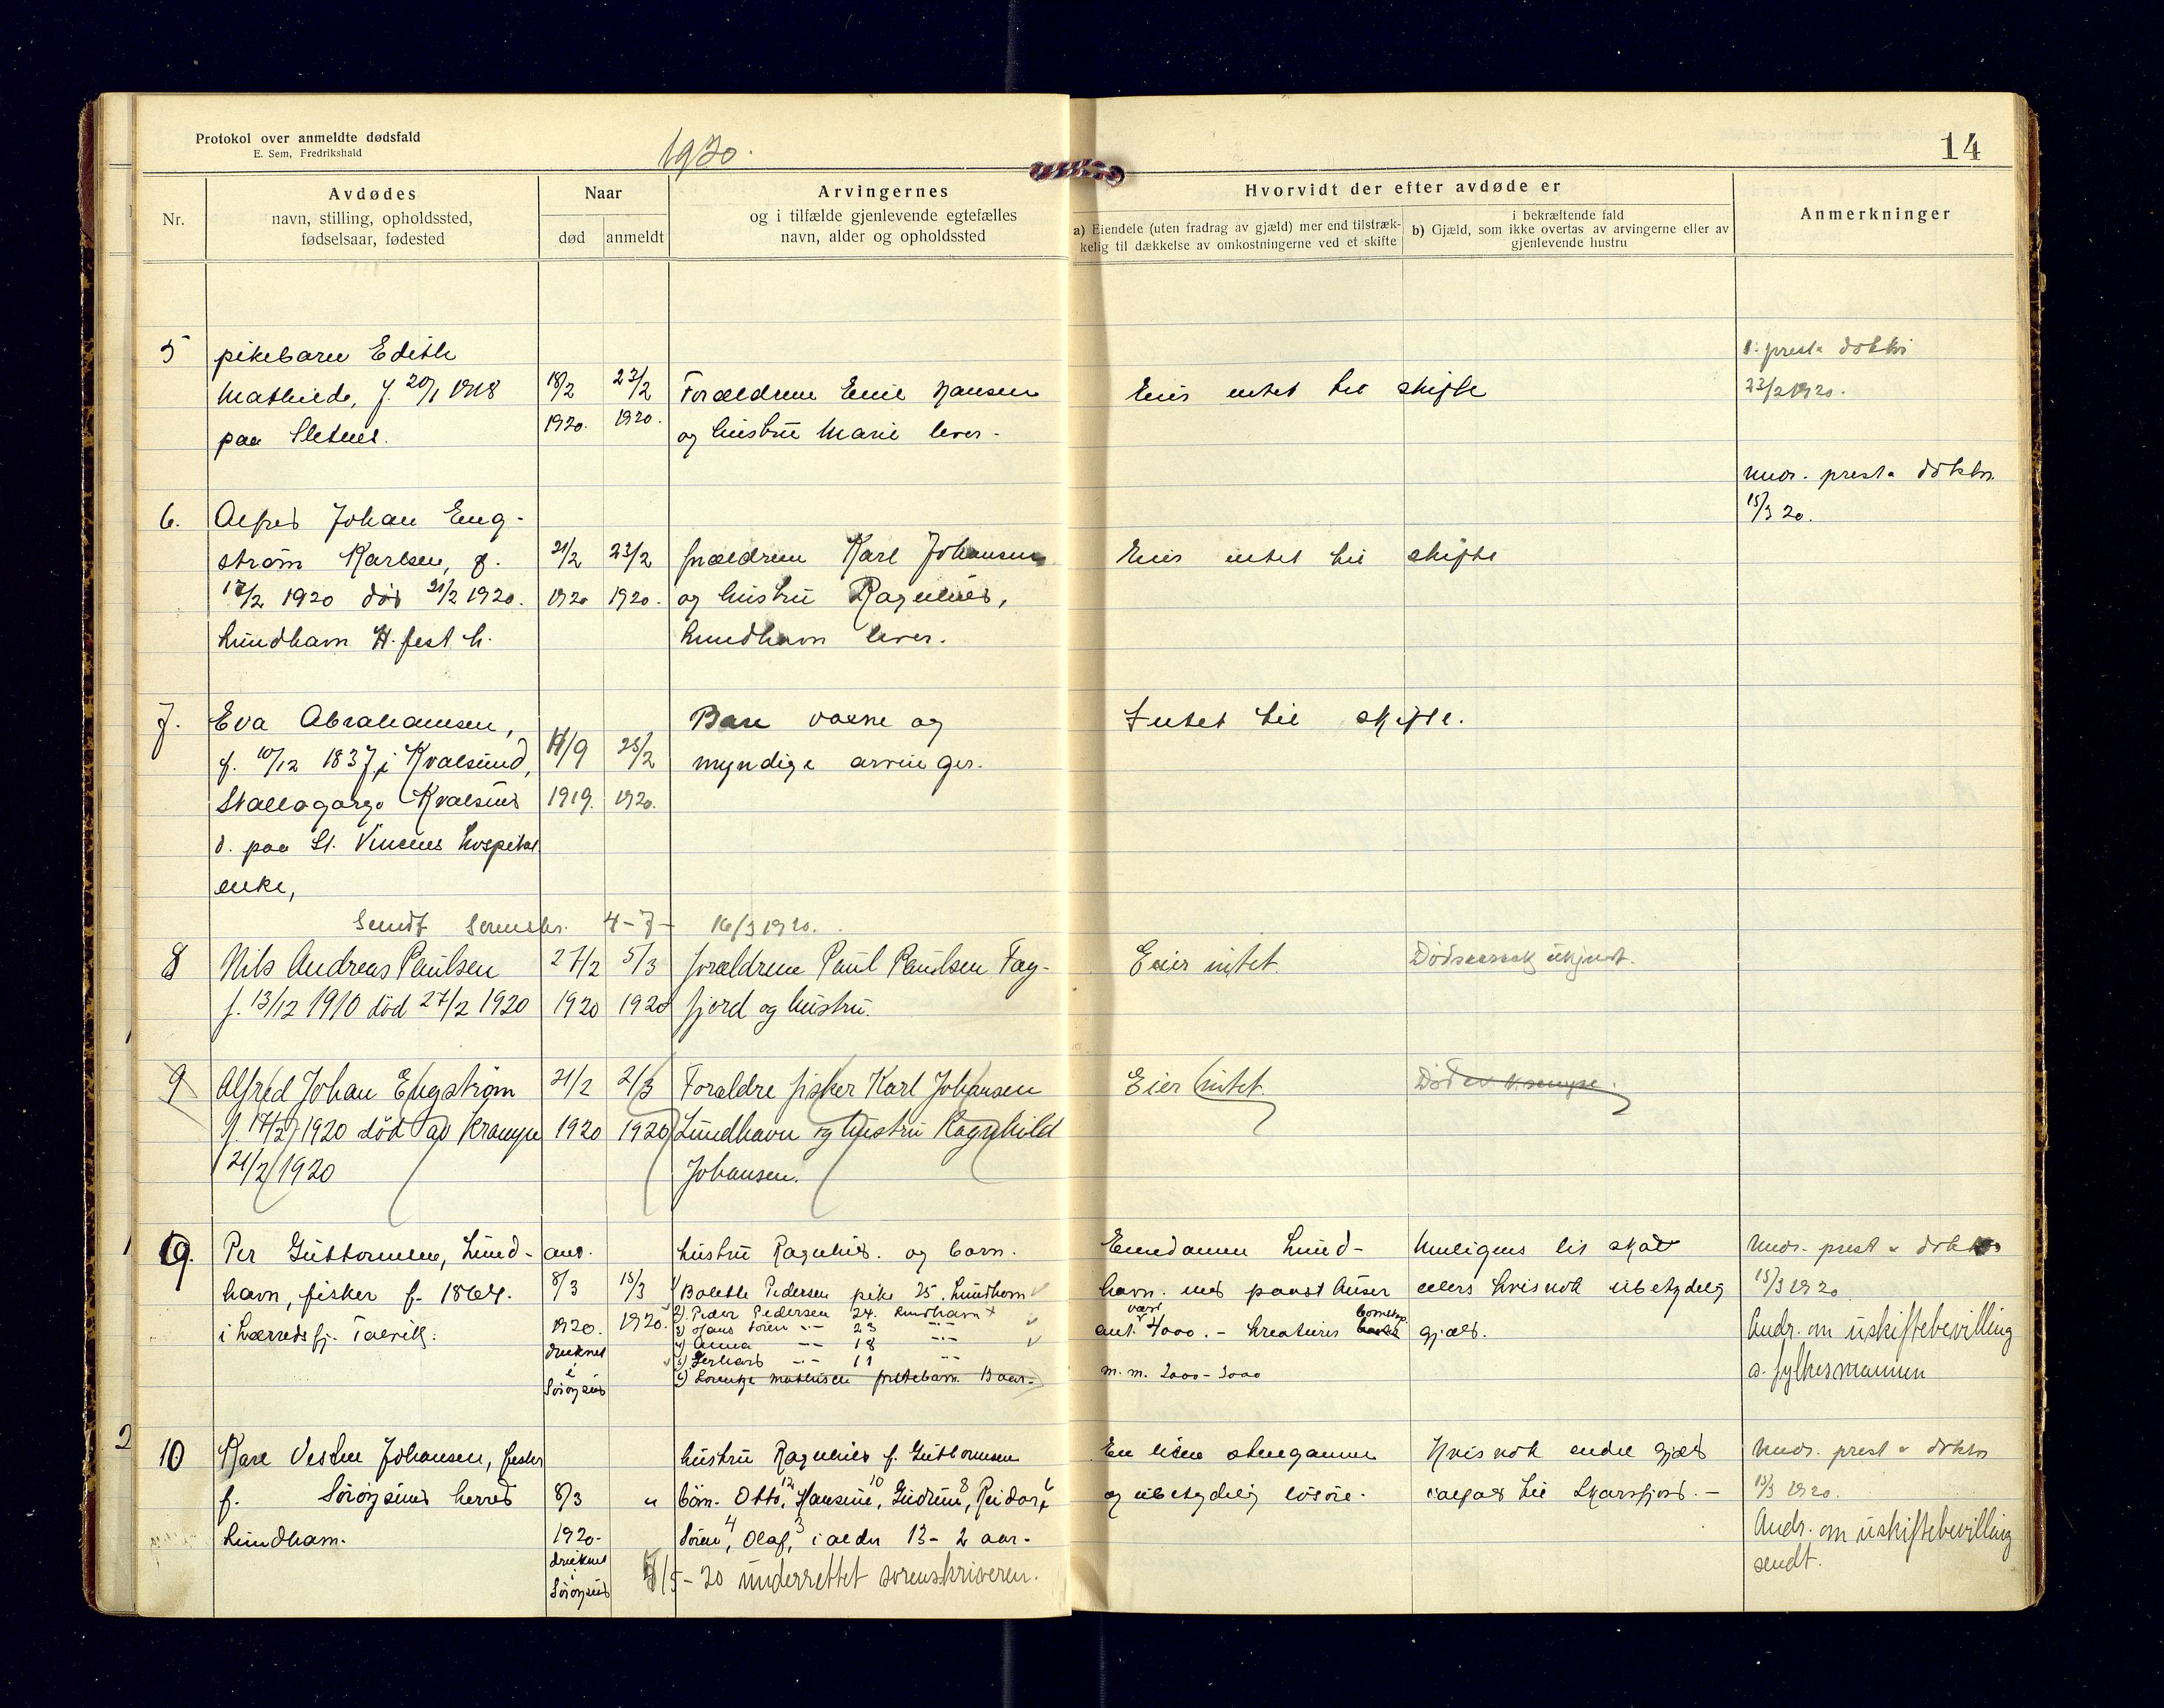 Protokol over anmeldte dødsfald
E. Sem, Fredrikshald
1920.
14
Nr.
Avdødes
navn, stilling, opholdssted,
fødselsaar, fødested
Naar
død
anmeldt
Arvingernes
og i tilfælde gjenlevende egtefælles
navn, alder og opholdssted
Hvorvidt der efter avdøde er
a) Eiendele (uten fradrag av gjæld) mer end tilstræk-
kelig til dækkelse av omkostningerne ved et skifte
i bekræftende fald
b) Gjæld, som ikke overtas av arvingerne eller av
gjenlevende hustru
Anmerkninger
5
pikebarn Edith
Mathilde, f. 20/1 1918
paa Sletnes.
18/2
1920.
23/2
1920.
Forældrene Emil Hansen
og hustru Marie lever.
Eier intet til skifte
prest doktor
23/2 1920.
6.
Alfred Johan Eng-
strøm Karlsen, f.
17/2 1920 død 21/2 1920.
Lundhavn H.fest h.
21/2
1920
23/2
1920.
forældrene Karl Johansen
og hustru Ragnhild,
Lundhavn lever.
Eier intet til skifte
Undr. prest & doktor.
15/3 20.
7.
Eva Abrahamsen,
f. 10/12 1837 i Kvalsund,
Stallogargo Kvalsund
d. paa St. Vincens hospital
enke,
11/9
1919.
25/2
1920.
Bare voksne og
myndige arvinger.
Intet til skifte.
Sendt Sorenskr. 4-7- 16/3 1920.
8
Nils Andreas Paulsen
f. 13/12 1910 död 27/2 1920
27/2
1920
5/3
1920
forældrene Paul Paulsen Fag-
fjord og hustru.
Eier intet.
Dödsaarsak ukjent.
9
Alfred Johan Engström
f. 17/2 1920 död av Krampe
21/2 1920
21/2
1920
2/3
1920
Foraldre fisker Karl Johansen
Lundhavn og hustru Ragnhild
Johansen.
Eier intet.
Död av krampe.
9.
Per Guttormsen, Lund-
havn, fisker f. 1864.
i Lerredsfj. Talvik.
8/3
1920.
druknet
i
Sörøysund
15/3
1920.
hustru Ragnhild. og barn.
1) Bolette Pedersen pike 25. Lundhavn
2) Peder Pedersen 24. Lundhavn
3) Hans Sören -"- 23 -"-
4) Anna -"- 18 -"-
5) Gerhard -"- 11 -"-
6) Lorentze Mathisen fostebarn 13 aar.
Eiendommen Lund-
havn. med paast. huser
ant. værd 4000. - kreaturer
m.m. 2000-3000
Muligens lit skat
ellers hvis nok ubetydelig
gjæld.
Undr. prest & doktor
15/3 1920.
Andr. om uskiftebevilling
a. fylkesmannen
10
Karl Johansen, fisker
f. Sörøysund herred
Lundhavn.
8/3
1920.
druknet
i
Sörøysund
"
hustru Ragnhild f. Guttormsen
börn. Otto, 12 Hansine, 10 Gudrun, 8 Reidar, 6
Sören, 4 Olaf, 3 i alder 13-2 aar.
5/5-20 underrettet sorenskriveren.
En liten stengamme
og ubetydelig lösöre.
Hvis nok endel gjæld
ialfald til Skarsfjord. -
Undr. prest & doktor
15/3 1920.
Andr. om uskiftebevilling
sendt.